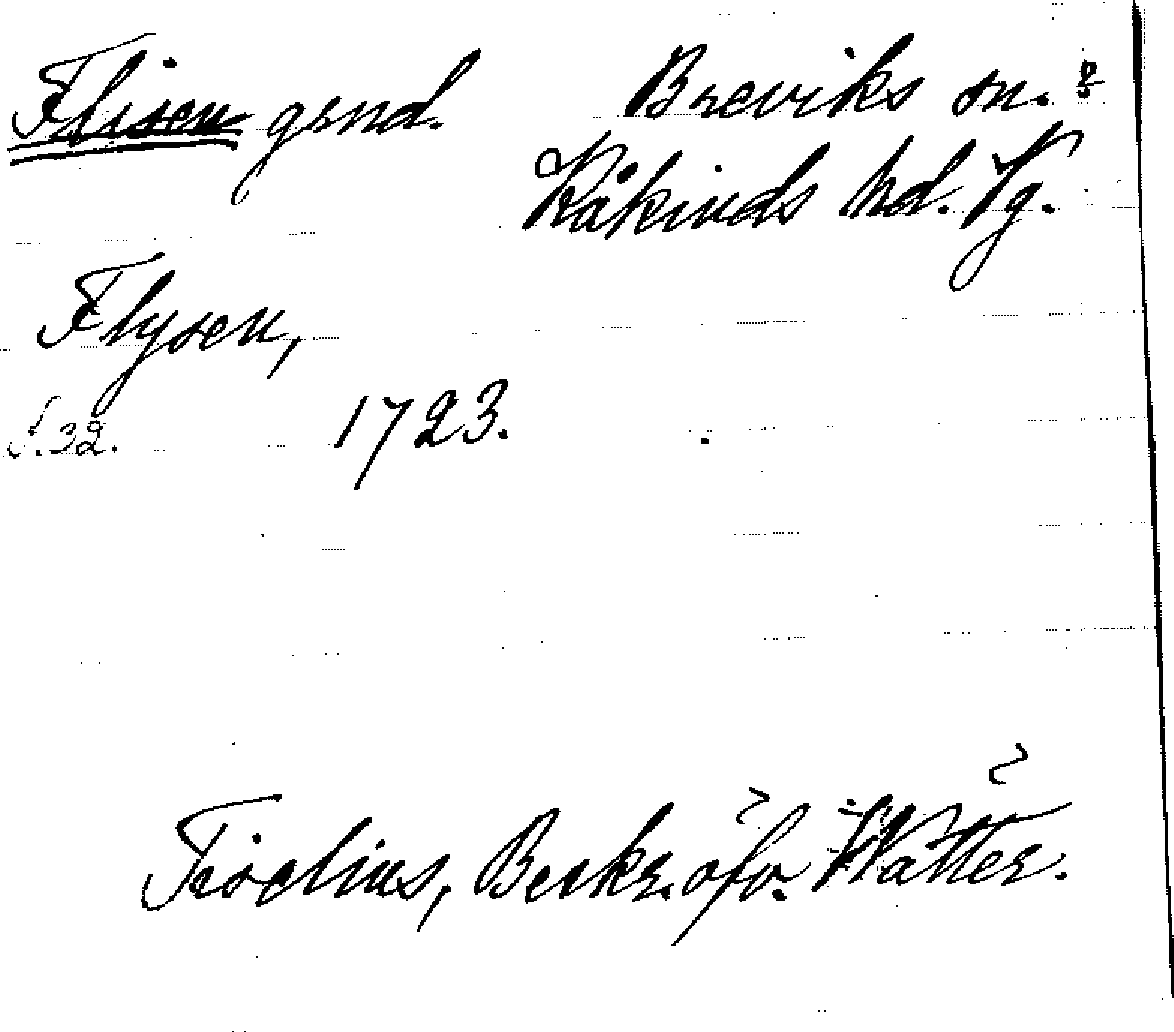 Flisen grnd. Breviks sn.
Kåkinds hd. Vg.
Flysen,
s. 32. 1723.
Tiselius, Beskr. öfv. Wätter.